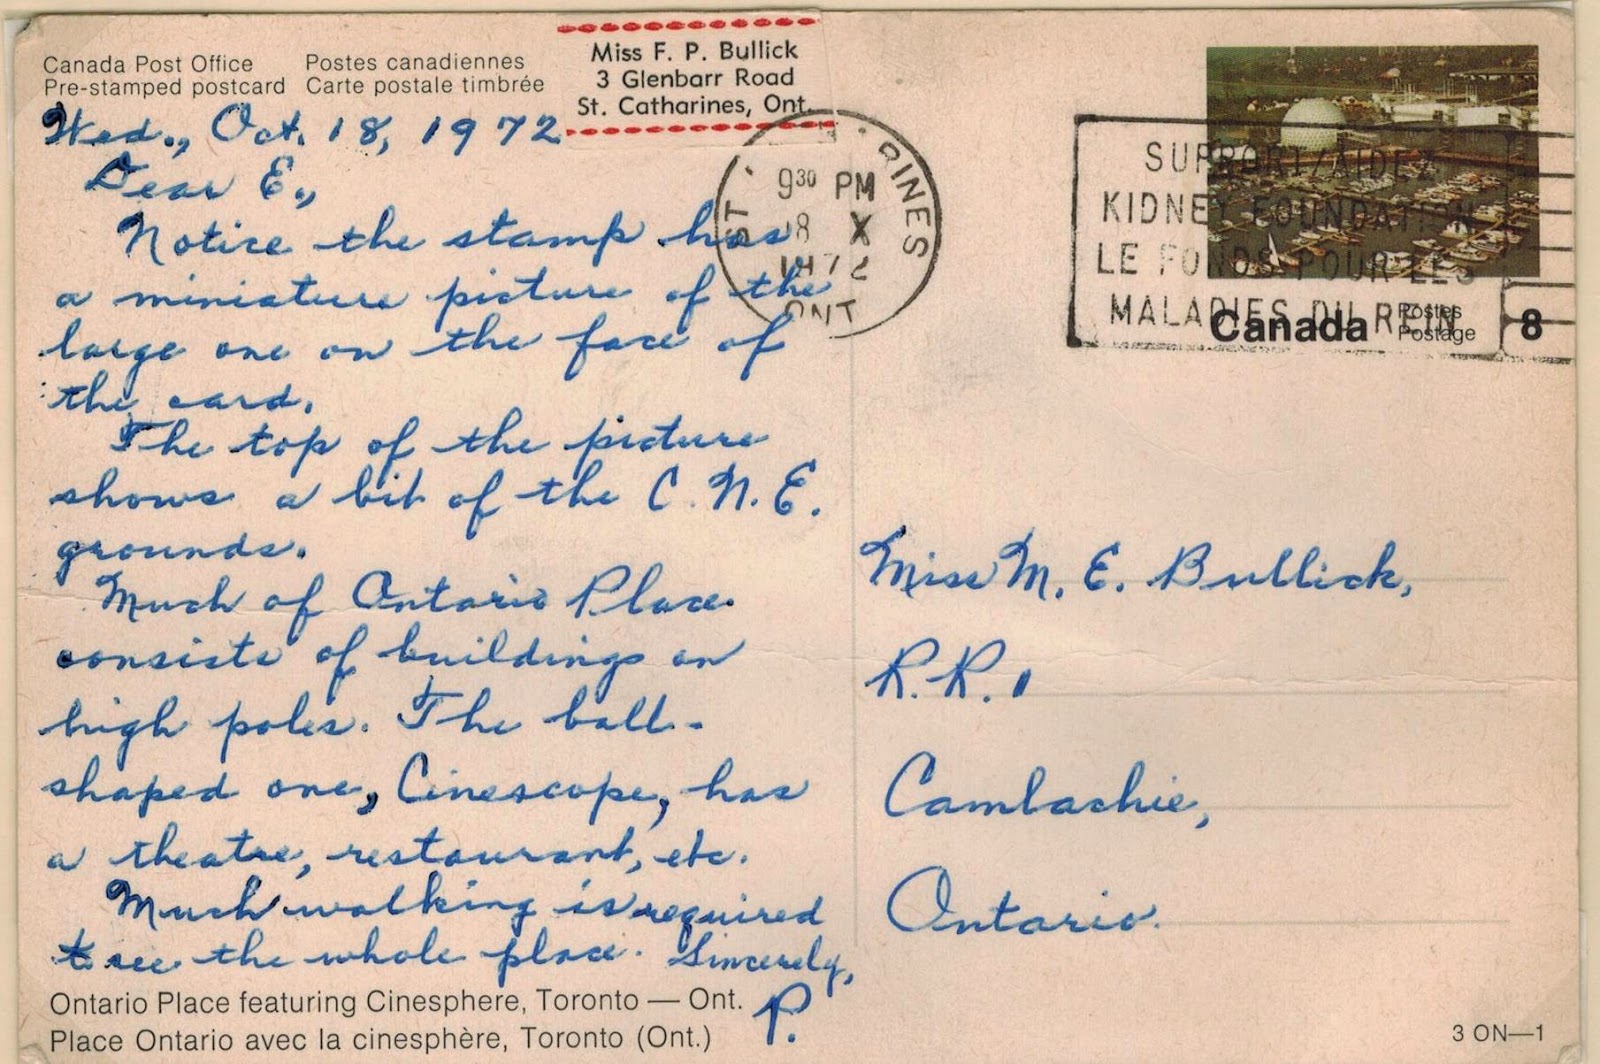 Canada Post Office Postes canadiennes
Pre-stamped postcard Carte postale timbrée
Miss F. P. Bullick
3 Glenbarr Road
St. Catharines, Ont.
Wed., Oct. 18, 1972
Dear E.,
Notice the stamp has
a miniature picture of the
large one on the face of
the card.
The top of the picture
shows a bit of the C.N.E.
grounds.
Much of Ontario Place
consists of buildings on
high poles. The ball-
shaped one, Cinescope, has
a theatre, restaurant, etc.
Much walking is required
to see the whole place. Sincerely,
P.
Ontario Place featuring Cinesphere, Toronto — Ont.
Place Ontario avec la cinesphère, Toronto (Ont.)
ST. RINES
930 PM
18 X
1972
ONT
SUPPORT/AIDEZ
KIDNEY FOUNDATION
LE FONDS POUR LES
MALADIES DU REIN
Canada Postes
Postage 8
Miss M. E. Bullick,
R.R. 1
Camlachie,
Ontario.
3 ON—1